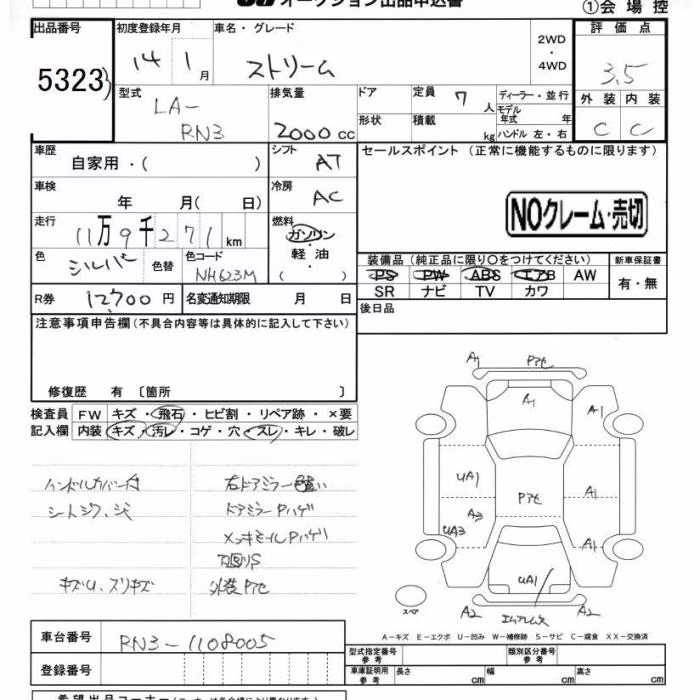 オークション出品申込書
①会場控
出品番号 初度登録年月 車名・グレード 2WD・4WD 評価点
5323 14 1月 ストリーム 3.5
型式 LA-RN3 排気量 2000cc ドア 定員 7人 ディーラー・並行 外装 内装
形状 積載 kg モデル年式 年 ハンドル 左・右 C C
車歴 自家用・( ) シフト AT セールスポイント (正常に機能するものに限ります)
車検 年 月( 日) 冷房 AC
NOクレーム・売切
走行 11万9千271km 燃料 ガソリン・軽油・( )
色 シルバー 色替 色コード NH623M 装備品 (純正品に限り○をつけてください) 新車保証書
PS PW ABS エアB AW 有・無
SR ナビ TV カワ
R券 12,700円 名変通知期限 月 日 後日品
注意事項申告欄 (不具合内容等は具体的に記入して下さい)
修復歴 有 〔箇所 〕
検査員 FW キズ・飛石・ヒビ割・リペア跡・×要
記入欄 内装 キズ・汚レ・コゲ・穴・スレ・キレ・破レ
ハンドルカバー付 右ドアミラー
シートシワ、 ドアミラーPハゲ
メッキモールPハゲ
下回りS
キズU、スリキズ 外装Pアセ
A1 Pアセ
A1 A1
UA1 Pアセ A1
A3
UA3 A1
UA1
スペア A2 A2
A-キズ E-エクボ U-凹み W-補修跡 S-サビ C-腐食 XX-交換済
車台番号 RN3-1108005
型式指定番号 参考 類別区分番号 参考
登録番号 車庫証明用 参考 長さ cm 幅 cm 高さ cm
希望出品コーナー